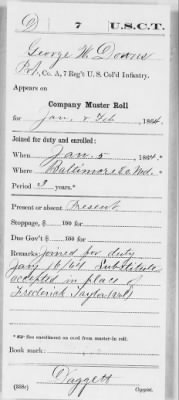 D 7 U.S.C.T.
George W. Downs
Pvt, Co. A, 7 Reg't U. S. Col'd Infantry.
Appears on
Company Muster Roll
for Jan. & Feb, 1864.
Joined for duty and enrolled:
When Jan. 5, 1864.*
Where Baltimore Co. Md.
Period 3 years.*
Present or absent Present
Stoppage, $ 100 for
Due Gov't $ 100 for
Remarks: Joined for duty
Jany 16/64 Substitute
accepted in place of
Frederick Taylor
* See enrollment on card from muster-in roll.
Book mark:
Daggett
(358c) Copyist.